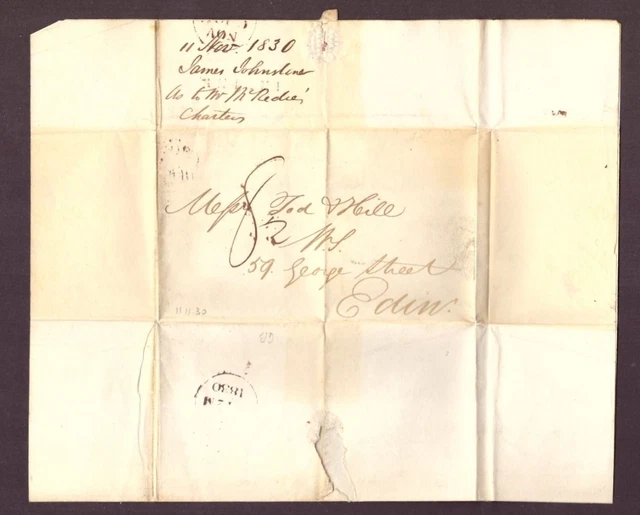 NOV
11 Nov. 1830
James Johnstone
As to Wm McRedie's
Charters
Messrs Tod & Hill
W.S.
59. George Street
Edinr.
11 11 30
1830